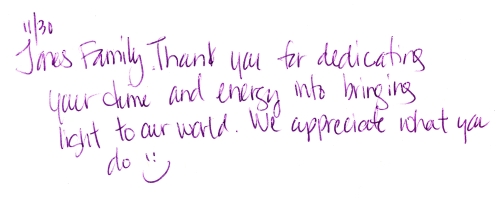 11/30
Jones Family. Thank you for dedicating
your time and energy into bringing
light to our world. We appreciate what you
do :)